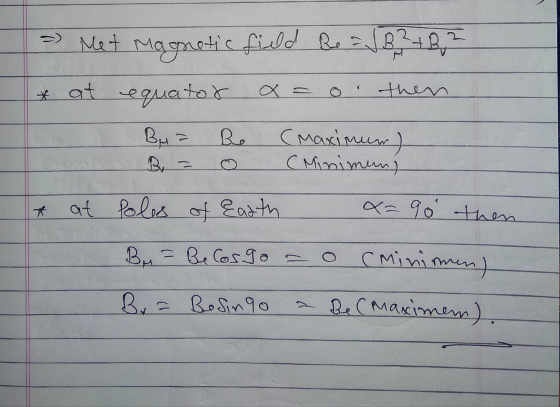 ⇒ Net Magnetic field Be = √(B_H² + B_V²)
* at equator α = 0° then
B_H = Be (Maximum)
B_V = 0 (Minimum)
* at Poles of Earth α = 90° then
B_H = Be Cos90 = 0 (Minimum)
B_V = Be Sin90 = Be (Maximum).